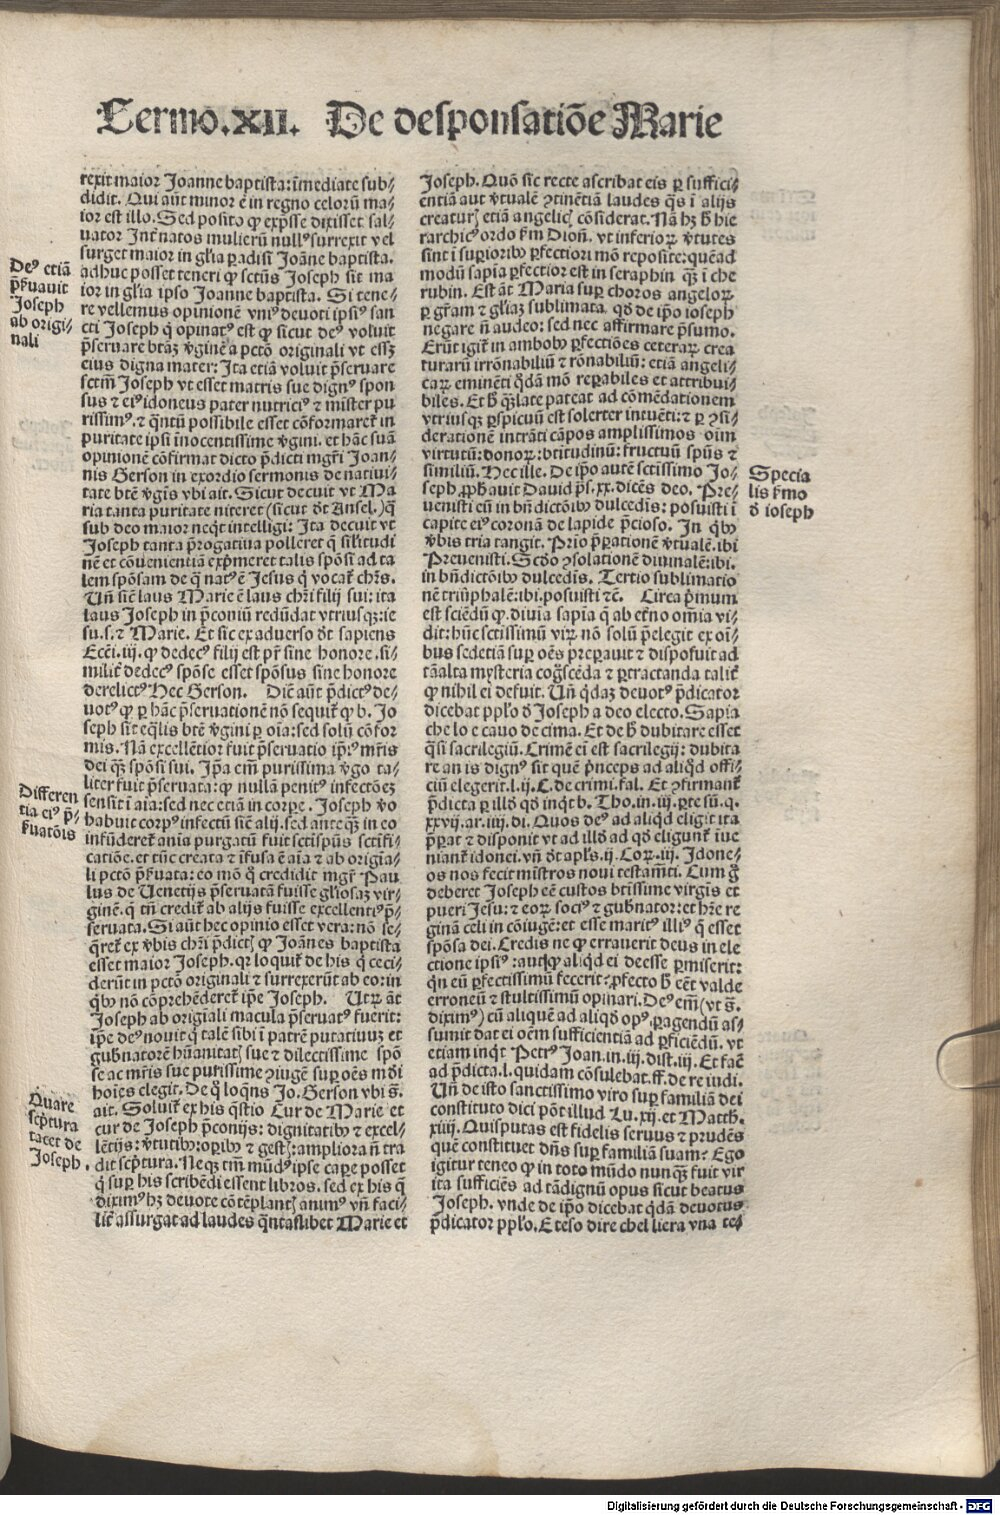 Sermo.XII. De desponsatiõe Marie
rexit maior Joanne baptista: ĩmediate sub⸗
didit. Qui aũt minor ẽ in regno celorũ ma⸗
ior est illo. Sed posito ꝙ exp̃sse dixisset sal⸗
uator Int̃ natos mulierũ nullꝰ surrexit vel
surget maior in gl̃ia paradisi Joãne baptista.
adhuc posset teneri ꝙ sctũs Joseph sit ma
ior in gl̃ia ipso Joanne baptista. Si tene⸗
re vellemus opinionẽ vniꝰ deuoti ipsiꝰ san
cti Joseph q̃ opinatꝰ est ꝙ sicut deꝰ voluit
p̃seruare btãz ṽginẽ a pctõ originali vt essꝫ
eius digna mater: Ita etiã voluit p̃seruare
sctm̃ Joseph vt esset matris sue dignꝰ spon
sus ⁊ eiꝰ idoneus pater nutriciꝰ ⁊ mister pu
rissimꝰ. ⁊ q̃ntũ possibile esset cõformaret̃ in
puritate ipsi ĩnocentissime ṽgini. et hãc suã
opinionẽ cõfirmat dicto p̃dicti mgr̃i Joan⸗
nis Gerson in exordio sermonis de natiui⸗
tate btẽ ṽgĩs vbi ait. Sicut decuit vt Ma
ria tanta puritate niteret (sicut d̃t Ansel.) q̃
sub deo maior neq̃t intelligi: Ita decuit vt
Joseph tanta p̃rogatiua polleret q̃ sil̃itudi
nẽ et cõuenientiã exp̃meret talis spõsi ad ta
lem spõsam de q̃ natꝰ ẽ Jesus q̃ vocat̃ chr̃s.
Uñ siẽ laus Marie ẽ laus chr̃i filij sui: ita
laus Joseph in p̃coniũ redũdat vtriusqꝫ: ie
su. s. ⁊ Marie. Et sic ex aduerso d̃t sapiens
Ecc̃i. iij. ꝙ dedecꝰ filij est pr̃ sine honore. si⸗
milit̃ dedecꝰ spõse esset spõsus sine honore
derelictꝰ Hec Gerson. Dic̃ aũt p̃dictꝰ de⸗
uotꝰ ꝙ ꝑ hãc p̃seruationẽ nõ sequit̃ ꝙ b. Jo
seph sit eq̃lis btẽ ṽgini ꝑ oĩa: sed solũ cõfor
mis. Nã excellẽtior fuit p̃seruatio ip̃iꝰ mr̃is
dei qꝫ spõsi sui. Ip̃a em̃ purissima ṽgo ta⸗
liter fuit p̃seruata: ꝙ nullã penitꝰ infectõeꝫ
sensit ĩ aĩa: sed nec etiã in corꝑe. Joseph ṽo
habuit corpꝰ infectũ siẽ alij. sed ante qꝫ in eo
infũderet̃ anĩa purgatũ fuit sctispũs sctifi⸗
catiõe. et tũc creata ⁊ ĩfusa ẽ aĩa ⁊ ab origĩa⸗
li pctõ p̃ẽuata: eo mõ q̃ credidit mgr̃ Pau
lus de Uenetijs p̃seruatã fuisse gl̃iosaꝫ vir⸗
ginẽ. q̃ tñ credit̃ ab alijs fuisse excellentiꝰ p̃⸗
seruata. Si aũt hec opinio esset vera: nõ se⸗
q̃ret̃ ex ṽbis chr̃i p̃dictꝭ ꝙ Joãnes baptista
esset maior Joseph. qꝛ loquit̃ de his q̃ ceci⸗
derũt in pctõ originali ⁊ surrexerũt ab eo: in
qĩbꝰ nõ cõprehẽderet̃ ip̃e Joseph. Utrũ ãt
Joseph ab origĩali macula p̃seruatꝰ fuerit:
ip̃e deꝰ nouit q̃ talẽ sibi ĩ patrẽ putatiuuꝫ et
gubñatorẽ hũanitatꝭ sue ⁊ dilectissime spõ
se ac mr̃is sue purissime ꝯiugẽ suꝑ oẽs mũdi
hoĩes elegit. De q̃ loqñs Jo. Gerson vbi s̃.
ait. Soluit̃ ex his q̃stio Cur de Marie et
cur de Joseph p̃conijs: dignitatibꝰ ⁊ excel⸗
lẽtijs: ṽtutibꝰ: oꝑibꝰ ⁊ gestꝭ: ampliora ñ tra
dit scp̃tura. Neqꝫ tm̃ mũdꝰ ipse caꝑe posset
q̃ suꝑ his scribẽdi essent libros. sed ex his q̃
diximꝰ hꝫ deuote cõtẽplantꝭ animꝰ vñ faci⸗
lit̃ assurgat ad laudes q̃ntaslibet Marie et
Joseph. Quõ sic recte ascribat eis ꝑ suffici⸗
entiã aut ṽtualẽ ꝯtinẽtiã laudes q̃s ĩ alijs
creaturꝭ etiã angelicꝭ cõsiderat. Nã hꝫ h̃ hie
rarchicꝰ ordo f̃m Dioñ. vt inferioꝝ ṽtutes
sint ĩ suꝑioribꝰ ꝑfectiori mõ reposite: quẽad
modũ sapĩa ꝑfectior est in seraphin qꝫ ĩ che
rubin. Est ãt Maria suꝑ choros angeloꝝ
ꝑ gr̃am ⁊ gl̃iaꝫ sublimata. qd̃ de ip̃o ioseph
negare ñ audeo: sed nec affirmare p̃sumo.
Erũt igit̃ in ambobꝰ ꝑfectiões ceteraꝝ crea
turarũ irrõnabiliũ ⁊ rõnabiliũ: etiã angeli⸗
caꝝ eminẽti q̃dã mõ reꝑabiles et attribui⸗
biles. Et h̃ qꝫlate pateat ad cõmẽdationem
vtriusqꝫ ꝑspicuũ est solerter intuẽti: ⁊ ꝑ ꝯsi⸗
derationẽ intrãti cãpos amplissimos oĩm
virtutũ: donoꝝ: btĩtudinũ: fructuũ spũs ⁊
similiũ. Hec ille. De ip̃o autẽ sctissimo Jo⸗
seph ꝓphauit Dauid pš. xx. dicẽs deo. Pre⸗
uenisti eũ in bñdictõibꝰ dulcedis: posuisti ĩ
capite eiꝰ coronã de lapide p̃cioso. In qĩbꝰ
ṽbis tria tangit. Prĩo p̃parationẽ ṽtualẽ. ibi
Preuenisti. Scdo ꝯsolationẽ diuinalẽ: ibi.
in bñdictõibꝰ dulcedis. Tertio sublimatio
nẽ triũphalẽ: ibi. posuisti ⁊c̃. Circa p̃mum
est sciẽdũ ꝙ diuĩa sapĩa q̃ ab et̃no om̃ia vi⸗
dit: hũc sctissimũ virũ nõ solũ p̃elegit ex oĩ⸗
bus sed etiã suꝑ oẽs preꝑauit ⁊ disposuit ad
tãalta mysteria cogscẽda ⁊ ꝑtractanda talit̃
ꝙ nihil ei defuit. Uñ q̃daꝫ deuotꝰ p̃dicator
dicebat ppl̃o d̃ Joseph a deo electo. Sapia
che lo e cauo de cima. Et de h̃ dubitare esset
q̃si sacrilegiũ. Crimẽ eĩ est sacrilegij: dubita
re an is dignꝰ sit quẽ p̃nceps ad aliqd̃ offi⸗
ciũ elegerit. l. ij. C. de crimi. sal. Et ꝯfirmant̃
p̃dicta ꝑ illd̃ qd̃ inq̃t b. Tho. in. iij. ꝑte sũ. q.
xxvij. ar. iiij. di. Quos deꝰ ad aliqd̃ eligit ita
p̃parat ⁊ disponit vt ad illd̃ ad qd̃ eligunt̃ ĩue
niant̃ idonei. vñ d̃t apl̃s. ij. Coꝝ. iij. Idone⸗
os nos fecit mĩstros noui testamẽti. Cum g̃
deberet Joseph eẽ custos btissime virgĩs et
pueri Jesu: ⁊ eoꝝ sociꝰ ⁊ gubñator: et hr̃e re
ginã celi in cõiugẽ: et esse maritꝰ illiꝰ q̃ esset
spõsa dei. Credis ne ꝙ errauerit deus in ele
ctione ipsiꝰ: aut ꝙ aliqd̃ ei deesse ꝑmiserit:
qñ eũ ꝑfectissimũ fecerit? ꝓfecto h̃ eẽt valde
erroneũ ⁊ stultissimũ opinari. Deꝰ em̃ (vt s̃.
diximꝰ) cũ aliquẽ ad aliqd̃ opꝰ ꝑagendũ as⸗
sumit dat ei oẽm sufficientiã ad ꝑficiẽdũ. vt
etiam inq̃t Petrꝰ Joan. in. iij. dist. iij. Et fac̃
ad p̃dicta. l. quidam cõsulebat. ff. de re iudi.
Uñ de isto sanctissimo viro suꝑ familiã dei
constituto dici põt illud Lu. xij. et Matth.
xxiiij. Quisputas est fidelis seruus ⁊ prudẽs
quẽ constituet dñs suꝑ familiã suam? Ego
igitur teneo ꝙ in toto mũdo nunqꝫ fuit vir
ita sufficiẽs ad tãdignũ opus sicut beatus
Joseph. vnde de ip̃o dicebat q̃dã deuotus
p̃dicator ppl̃o. E teso dire chel liera vna te⸗
Deꝰ etiã
p̃ẽuauit
Joseph
ab origi⸗
nali
Differen
tia eiꝰ p̃⸗
ẽuatõis
Quare
scp̃tura
tacet de
Joseph.
Specia
lis ẽmo
d̃ ioseph
Digitalisierung gefördert durch die Deutsche Forschungsgemeinschaft - DFG